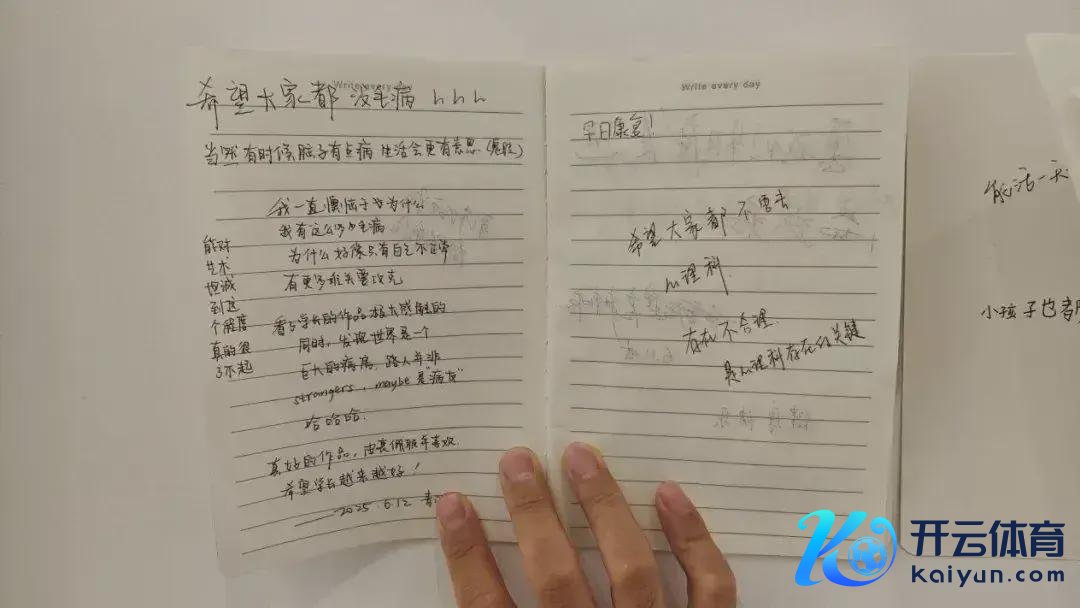 Write every day
希望大家都没毛病 hhh
当然有时候脑子有点病 生活会更有意思
我一直
为什么
我有这么多毛病
为什么好像只有自己不正常
有更多难关要攻克
能对
艺术
坦诚
到这
个程度
真的很
了不起
看学长的作品极大感触的
同时,发现世界是一个
巨大的病房,路人并非
strangers, maybe是"病友"
哈哈哈.
真好的作品,由衷佩服并喜欢.
希望学长越来越好!
2025.6.12
Write every day
早日康复!
希望大家都不要去
心理科.
存在不合理
是心理科存在的关键
能活一天
小孩子也
开云体育
Kaiyun.com